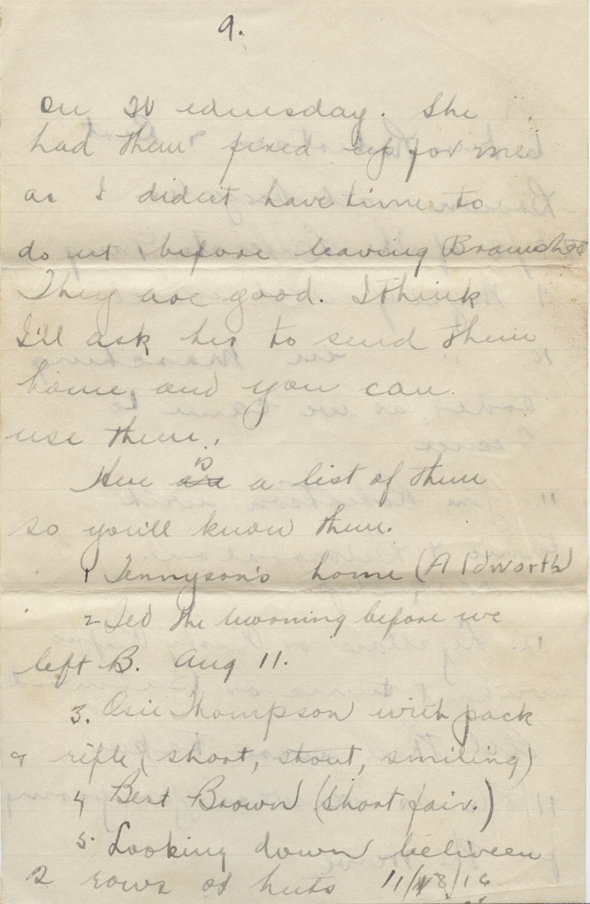 9.
on Wednesday. She
had them fixed up for me
as I didn't have time to
do it before leaving Bramshott
They are good. I think
I'll ask her to send them
home and you can
use them.
Here is a list of them
so you'll know them.
1 Tennyson's home (Aldworth)
2 Ted the morning before we
left B. Aug 11.
3. Osie Thompson with pack
& rifle (short, stout, smiling)
4 Bert Brown (short fair.)
5. Looking down between
2 rows of huts 11/8/16